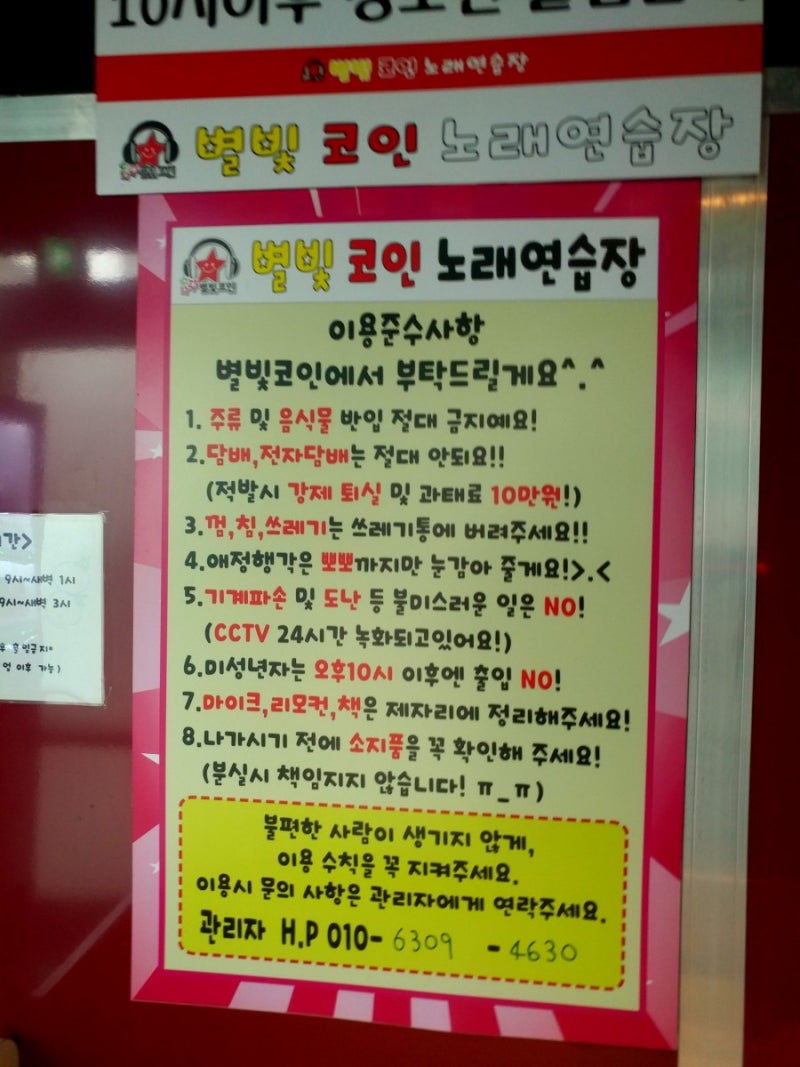 10시이후 청소년 출입금지
별빛 코인 노래연습장
별빛 코인 노래연습장
별빛 코인 노래연습장
별빛코인
이용준수사항
별빛코인에서 부탁드릴게요^.^
1. 주류 및 음식물 반입 절대 금지예요!
2.담배,전자담배는 절대 안되요!!
(적발시 강제 퇴실 및 과태료 10만원!)
3.껌,침,쓰레기는 쓰레기통에 버려주세요!!
4.애정행각은 뽀뽀까지만 눈감아 줄게요!>.<
5.기계파손 및 도난 등 불미스러운 일은 NO!
(CCTV 24시간 녹화되고있어요!)
6.미성년자는 오후10시 이후엔 출입 NO!
7.마이크,리모컨,책은 제자리에 정리해주세요!
8.나가시기 전에 소지품을 꼭 확인해 주세요!
(분실시 책임지지 않습니다! ㅠ_ㅠ)
불편한 사람이 생기지 않게,
이용 수칙을 꼭 지켜주세요.
이용시 문의 사항은 관리자에게 연락주세요.
관리자 H.P 010- 6309 - 4630
간>
9시~새벽 1시
9시~새벽 3시
출입금지
이후 가능)